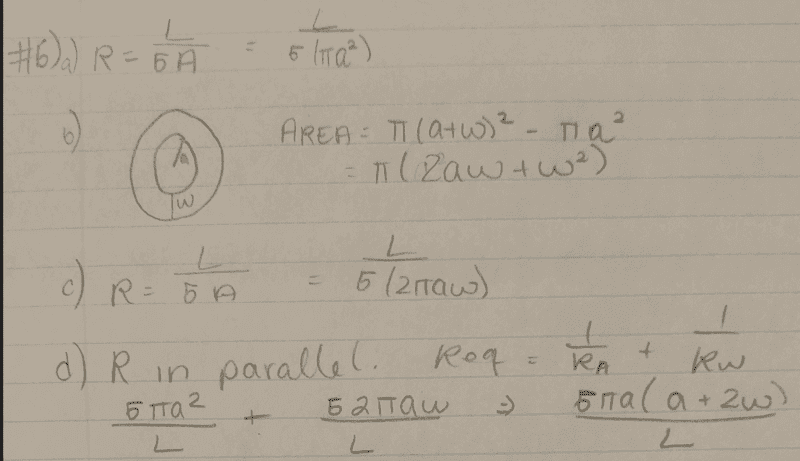 #6) a) R = L/5A = L/5(πa²)
b) a w AREA = π(a+w)² - πa²
= π(2aw + w²)
c) R = L/5A = L/5(2πaw)
d) R in parallel. Req = 1/RA + 1/Rw
5πa²/L + 52πaw/L ⇒ 5πa(a + 2w)/L